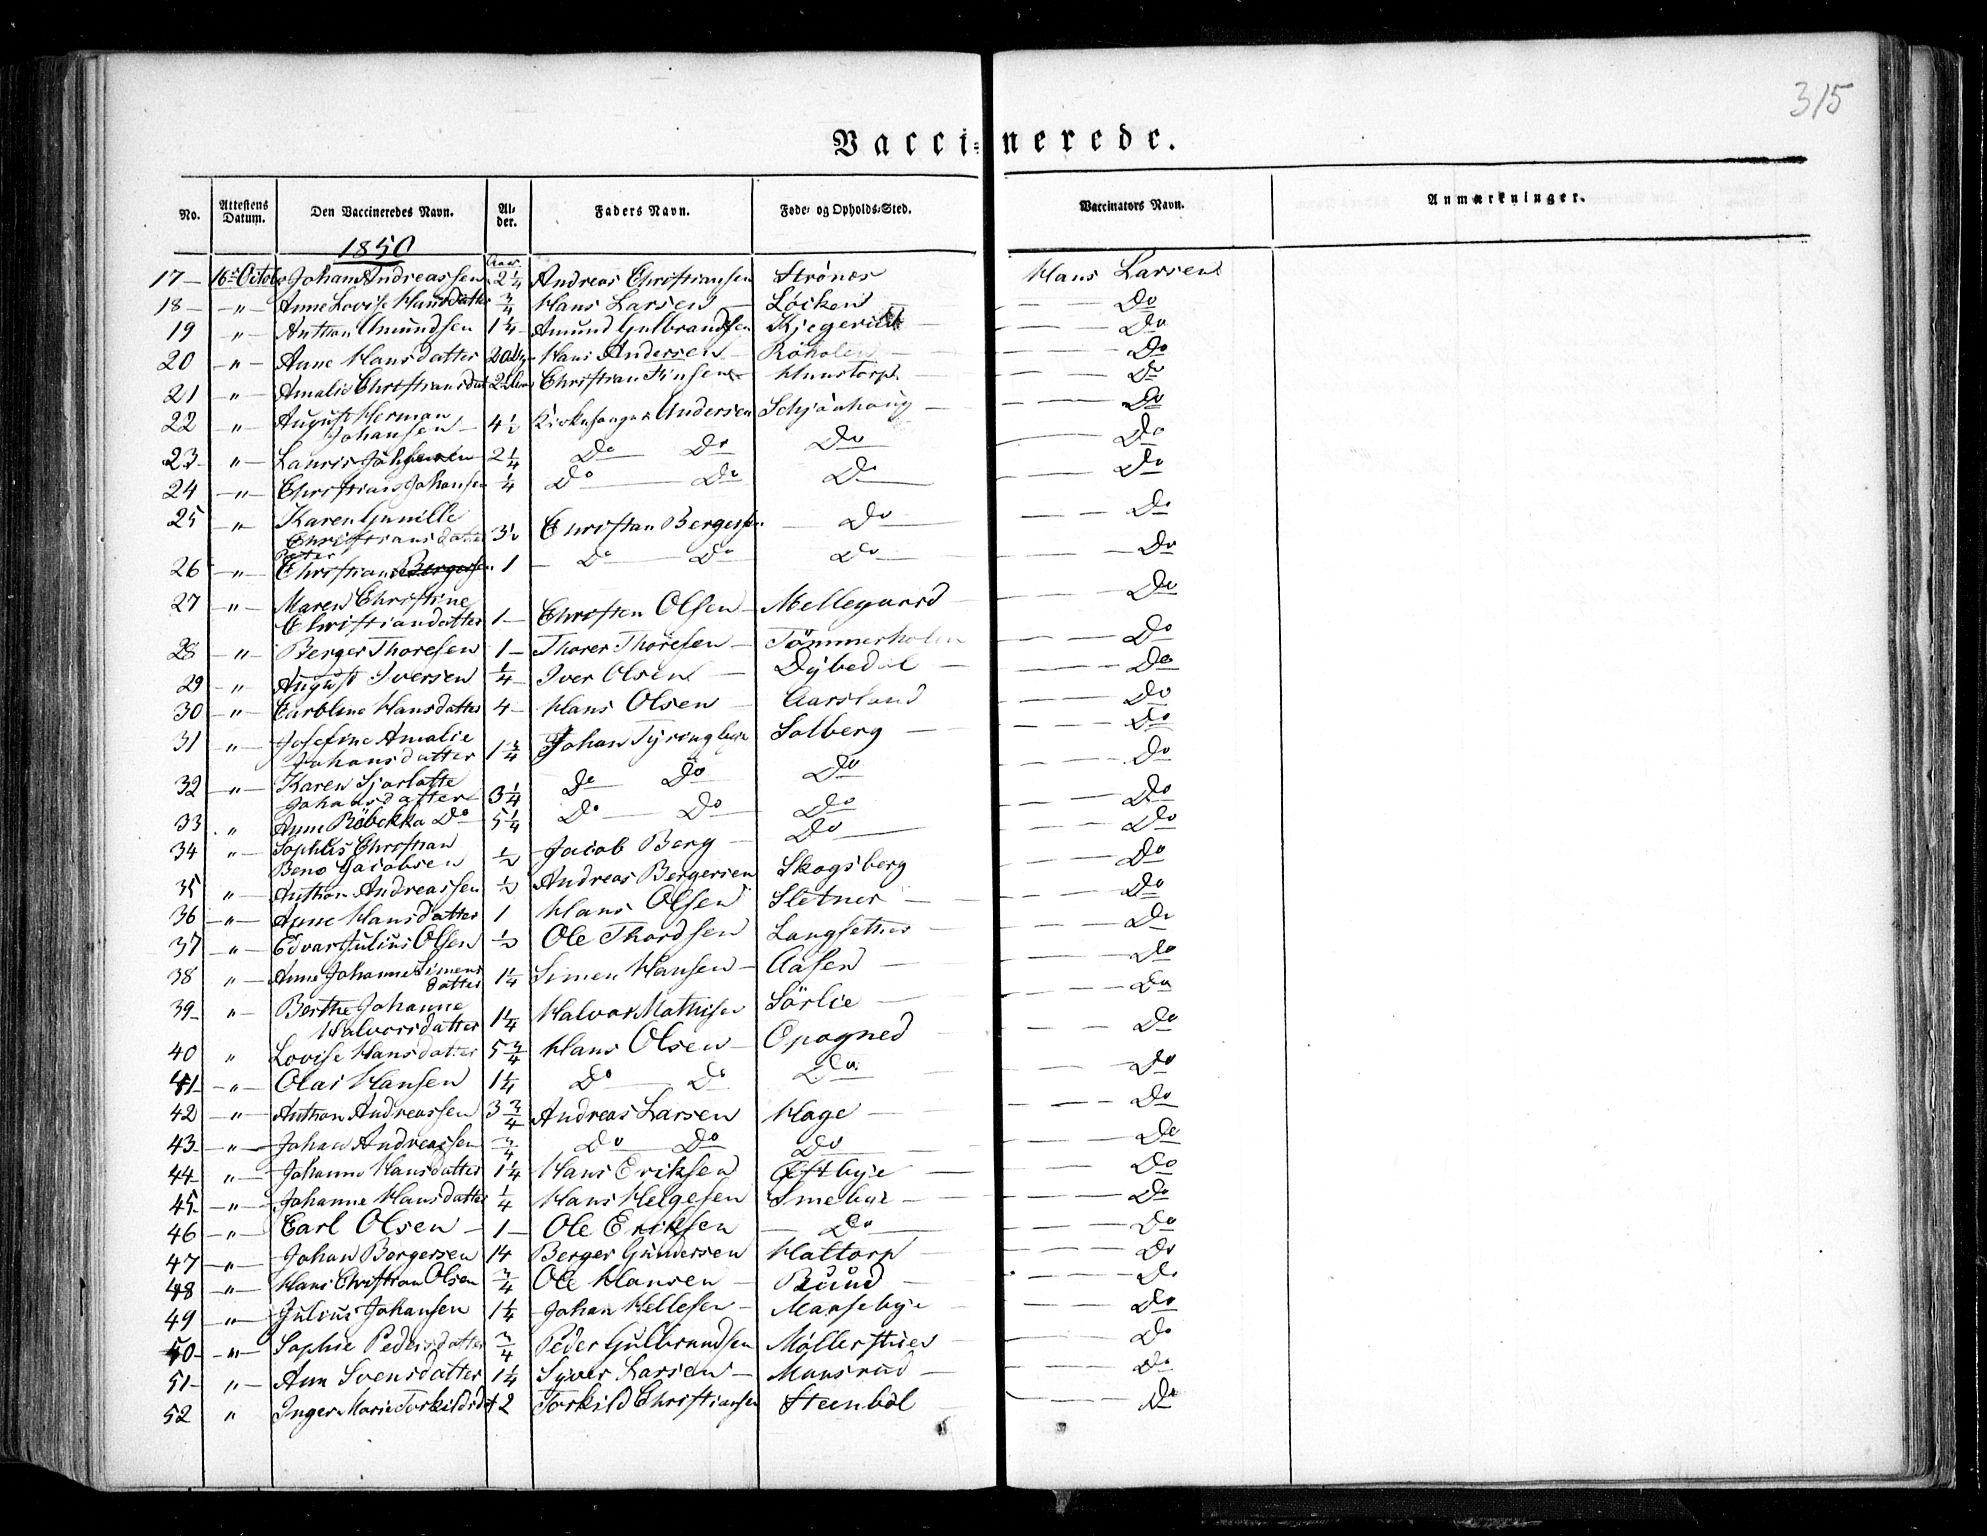 315
Vaccinerede.
No. Attestens Datum. Den Vaccineredes Navn. Al-der. Faders Navn. Føde- og Opholds-Sted. Vaccinators Navn. Anmærkninger.
1850
Aar
17 — 16de October Johan Andreassen 2 1/4 Andreas Christiansen Strønes Hans Larsen
18 — „ — Anne Lovise Hansdatter 3/4 Hans Larsen — Løcken — Do
19 „ — Anthon Amundsen 1 1/4 Amund Gulbrandsen — Do
20 „ — Anne Hansdatter Hans Andersen — Røholen — Do
21 „ — Amalie Christiansdat Christian Finsen Huustorp — Do
22 „ — August Herman
Johansen — 4 1/2 Kirkesanger Andersen Schjønhaug — Do
23 „ — Lauris Johansen 2 1/4 Do Do Do — Do
24 „ — Christian Johansen 1/4 Do Do Do — Do
25 „ — Karen Gunille
Christiansdatter 3 1/2 Christian Bergersen — Do — Do
Peter
26 „ — Christian Bergersen 1 — Do Do Do — Do
27 „ — Maren Christine
Christiandatter 1 — Christen Olsen — Mellegaard — Do
28 — „ — Berger Thoresen 1 — Thorer Thoresen — Tömmerholen — Do
29 „ — August Iversen 1/4 Iver Olsen — Dybedal — Do
30 — „ — Caroline Hansdatter 4 — Hans Olsen — Aarsland — Do
31 „ — Josefine Amalie
Johansdatter 1 3/4 Johan Solberg — Do
32 „ — Karen Sjarlotte
Johansdatter 3 1/4 Do Do Do — Do
33 „ Anne Räbekka Do 5 1/4 Do Do Do — Do
34 „ — Christian
Jacobsen 1/2 Jacob Berg — Do — Do
35 „ Anthon Andreassen 1/2 Andreas Bergersen Skogsberg — Do
36 — „ — Anne Hansdatter 1 Hans Olsen Sletner — Do
37 „ — Edvar Julius Olsen 1/2 Ole Thordsen Langsether — Do
38 „ — Anne Johanne Simens
datter 1 1/4 Simen Hansen — Aasen — Do
39 — „ — Berthe Johanne
Halvorsdatter 1 1/4 Halvor Mathisen Sörlie — Do
40 „ Lovise Hansdatter 5 3/4 Hans Olsen — Opogned — Do
41 — „ — Olai Hansen 1 1/4 Do Do Do — Do
42 „ — Anthon Andreassen 3 3/4 Andreas Larsen Hage — Do
43 — „ — Johan Andreassen 3/4 Do Do Do — Do
44 — „ — Johanne Hansdatter 1 1/4 Hans Eriksen Østbye — Do
45 — „ — Johanne Hansdatter 1/4 Hans Helgesen Smebye — Do
46 — „ — Carl Olsen — 1 — Ole Eriksen — Do — Do
47 — „ — Johan Borgersen 14 Berger Gundersen Hattorp — Do
48 — „ — Hans Christian Olsen 3/4 Ole Hansen — Ruud — Do
49 „ — Julius Johansen 1 1/4 Johan Hellesen — — Do
50 — „ — Sophie Pedersdatter 3/4 Peder Gulbrandsen Møllerstuen — Do
51 — „ — Ann Svensdatter 1 1/4 Syver Larsen — Monsrud — Do
52 „ Inger Marie Torkildsd 2 Torkild Christiansen Steenböl — Do